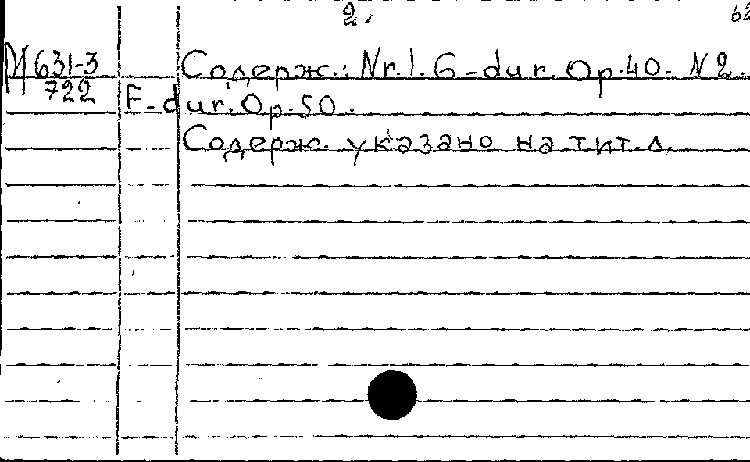 2.
М 631-3 Содерж.: Nr. 1. G-dur. Op. 40. N 2.
722 F-dur. Op. 50.
Содерж. указано на тит. л.